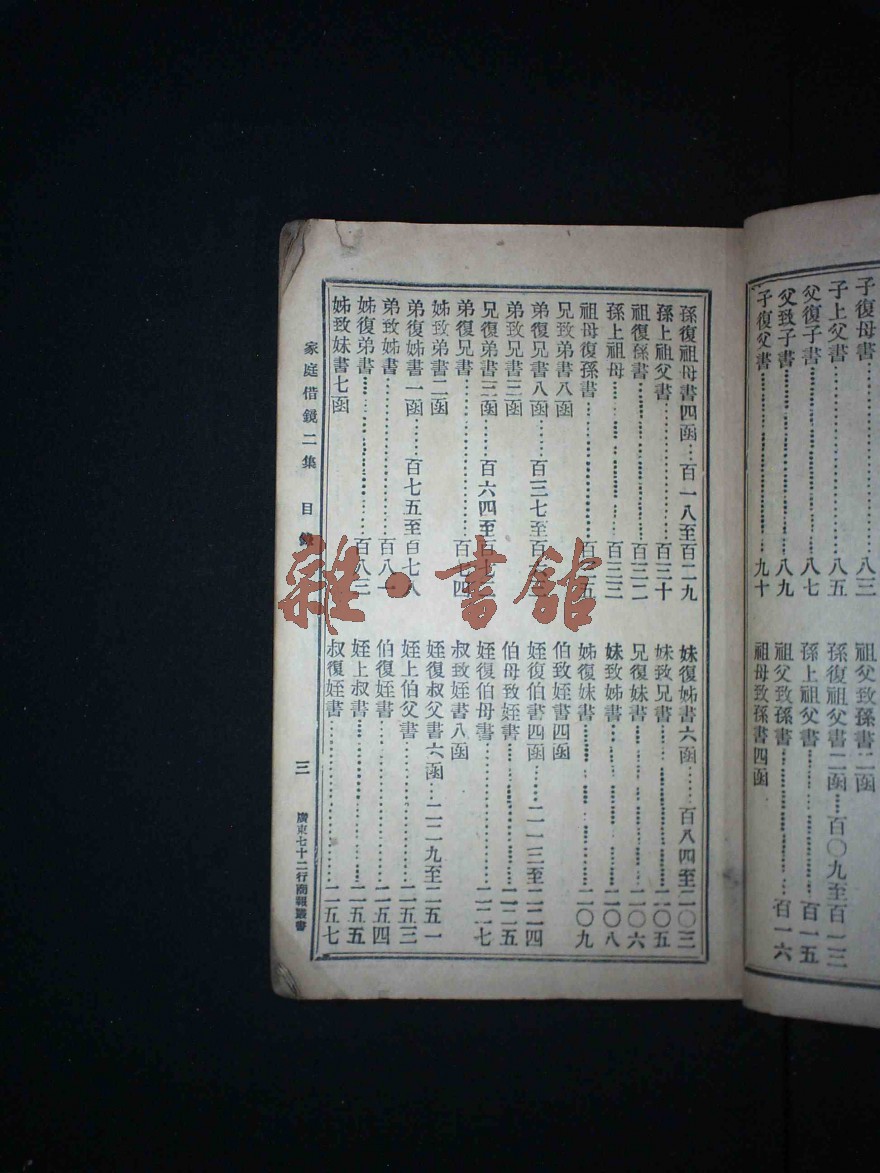 子復母書……八三
子上父書……八五
父復子書……八七
父致子書……八九
子復父書……九十
祖父致孫書二函
孫復祖父書二函……百〇九至百一三
孫上祖父書……百一五
祖父致孫書……百一六
祖母致孫書四函
孫復祖母書四函……百一八至百二九
孫上祖父書……百三十
祖復孫書……百三二
孫上祖母……百三三
祖母復孫書
兄致弟書八函
弟復兄書八函……百三七至
弟致兄書三函
兄復弟書三函……百六四至
弟復兄書……百七四
姊致弟書二函
弟復姊書一函……百七五至百七八
弟致姊書……百八一
姊復弟書……百八三
姊致妹書七函
妹復姊書六函……百八四至二〇三
妹致兄書……二〇五
兄復妹書……二〇六
妹致姊書……二〇八
姊復妹書……二〇九
伯致姪書四函
姪復伯書四函……二一三至二二四
伯母致姪書……二二五
姪復伯母書……二二七
叔致姪書八函
姪復叔父書六函……二二九至二五一
姪上伯父書……二五三
伯復姪書……二五四
姪上叔書……二五五
叔復姪書……二五七
家庭借鏡二集 目錄 三 廣東七十二行商報叢書
雜·書館